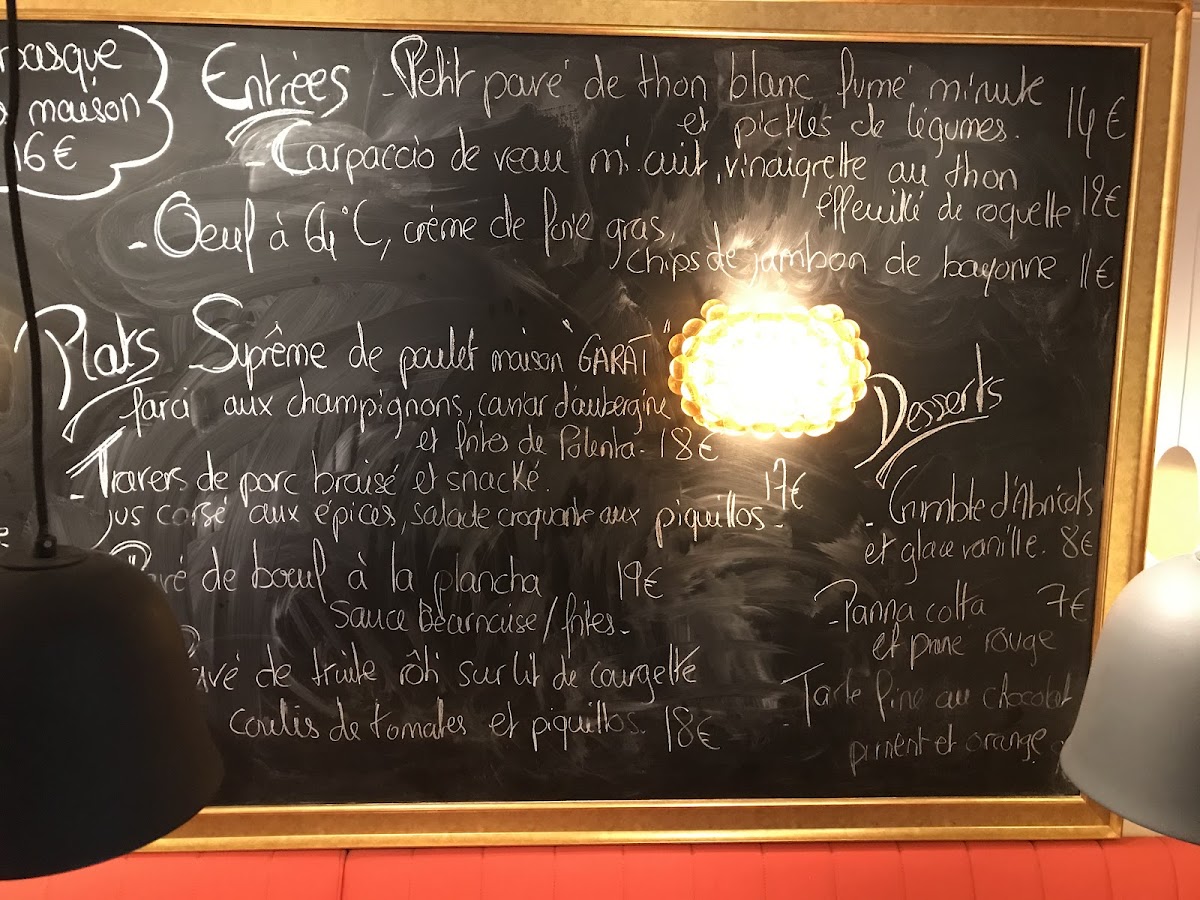 basque
maison
16€
Entrées - Petit pavé de thon blanc fumé minute
et pickles de légumes. 14€
- Carpaccio de veau mi.cuit, vinaigrette au thon
effeuillé de roquette 12€
- Oeuf à 64°C, crème de foie gras,
chips de jambon de bayonne 11€
Plats Suprême de poulet maison "GARAT"
farci aux champignons, caviar d'aubergine
et frites de Polenta - 18€
- Travers de porc braisé et snacké.
jus corsé aux épices, salade croquante aux piquillos - 17€
Pavé de boeuf à la plancha 19€
Sauce Béarnaise / frites -
Pavé de truite rôti sur lit de courgette
coulis de tomates et piquillos. 18€
Desserts
- Crumble d'Abricots
et glace vanille. 8€
- Panna cotta 7€
et prune rouge
- Tarte fine au chocolat
piment et orange